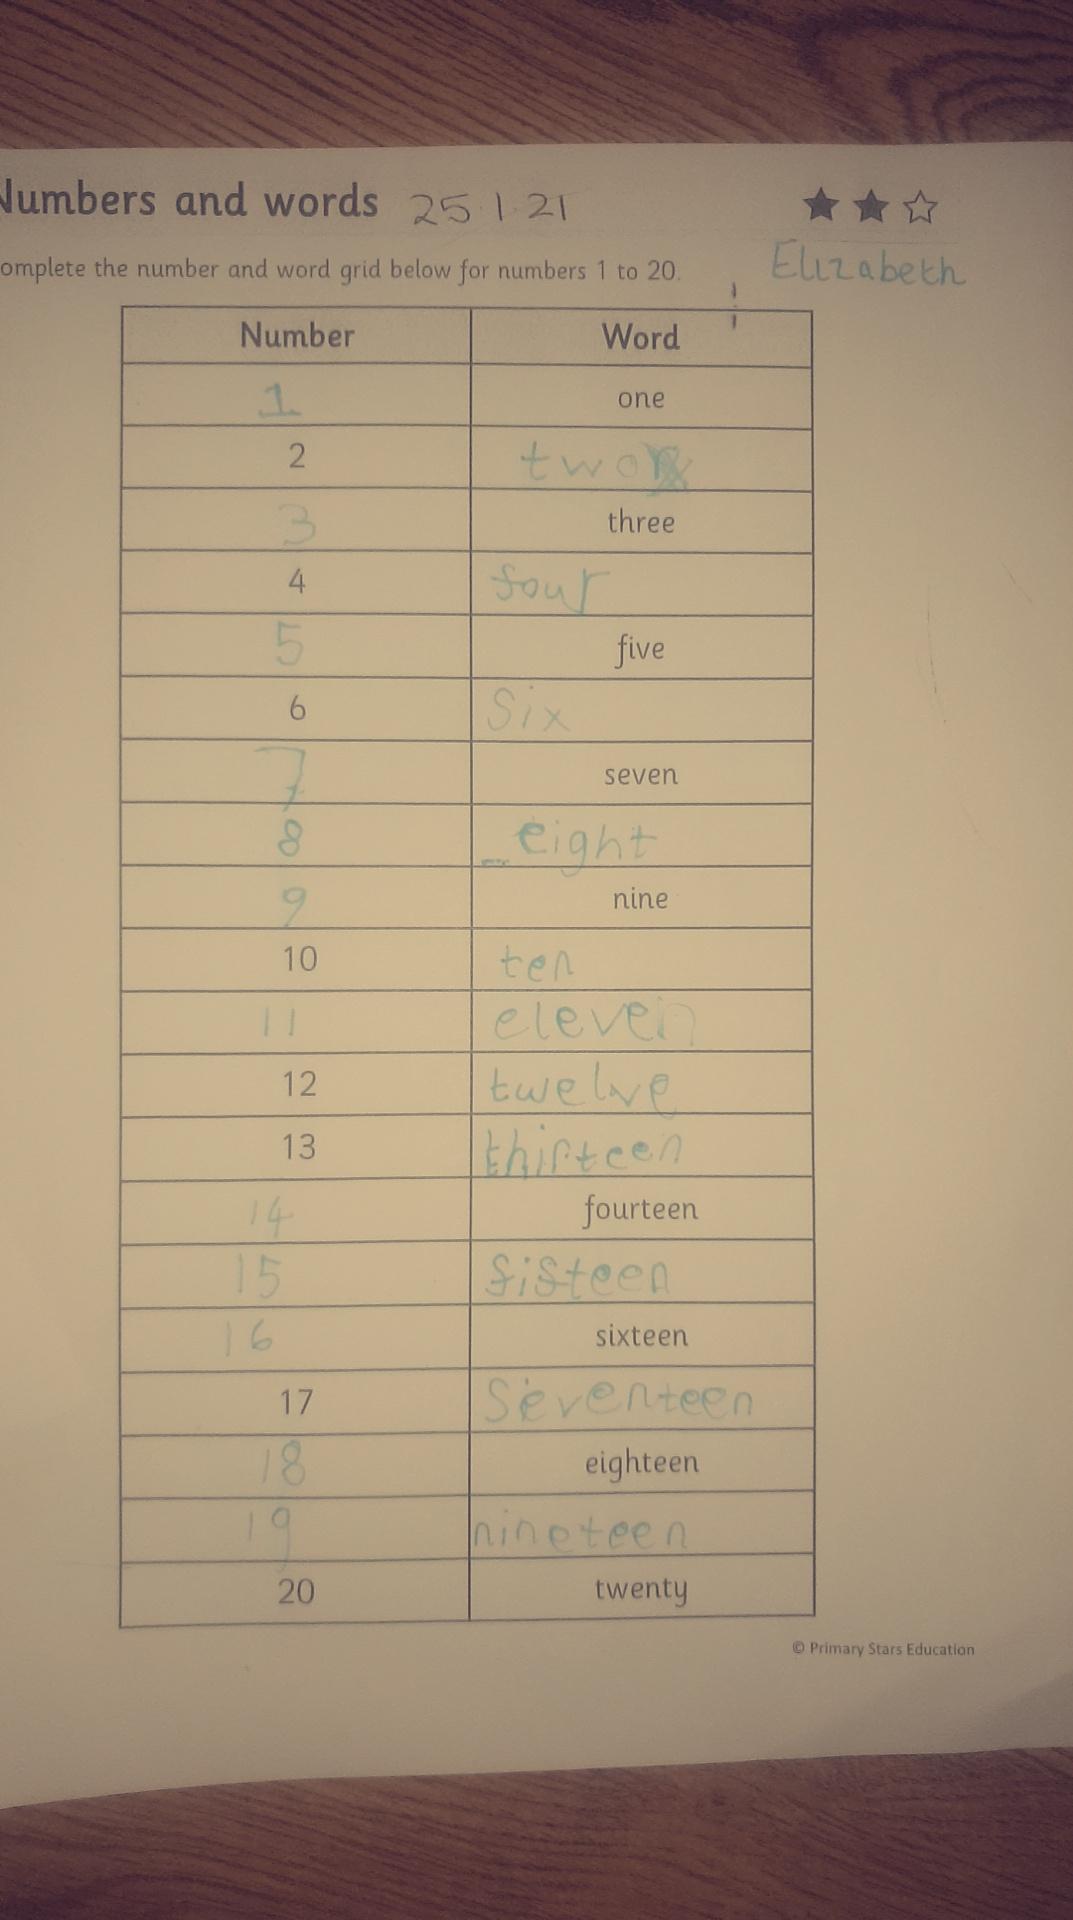 Numbers and words 25.1.21
omplete the number and word grid below for numbers 1 to 20.
Elizabeth
Number Word
1 one
2 two
3 three
4 four
5 five
6 Six
7 seven
8 eight
9 nine
10 ten
11 eleven
12 twelve
13 thirteen
14 fourteen
15 fifteen
16 sixteen
17 Seventeen
18 eighteen
19 nineteen
20 twenty
© Primary Stars Education